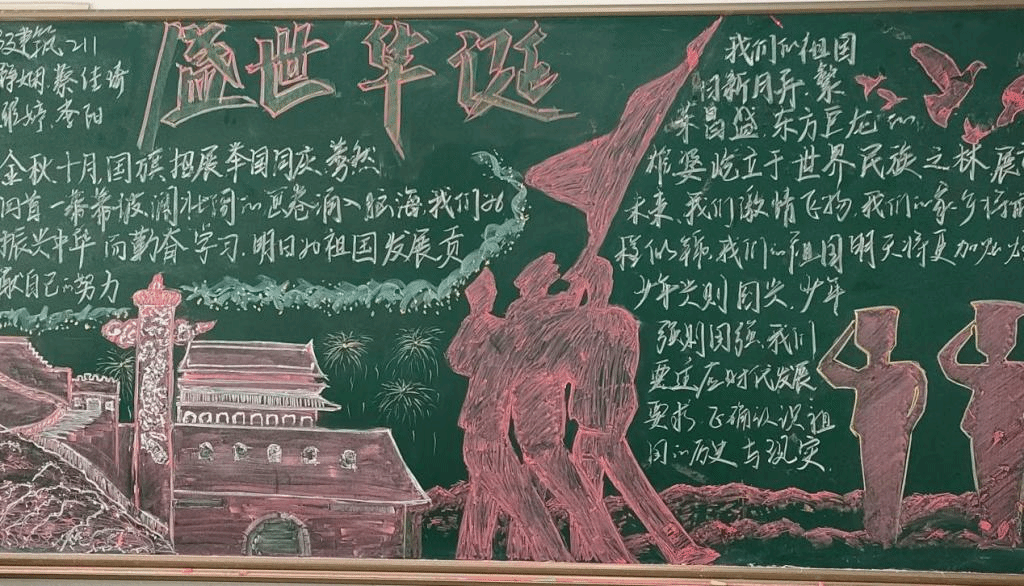 盛世华诞
建筑211
婷娴.蔡佳琦
婷.李阳
金秋十月,国旗招展.举国同庆.蓦然
回首一幕幕波澜壮阔的画卷涌入脑海.我们为
振兴中华而勤奋学习.明日为祖国发展贡
献自己的努力
我们的祖国
日新月异.繁
荣昌盛.东方巨龙的
雄姿屹立于世界民族之林.展
未来.我们激情飞扬.我们的家乡将前
程似锦.我们的祖国明天将更加
少年兴则国兴.少年
强则国强.我们
要适应时代发展
要求,正确认识祖
国的历史与现实.